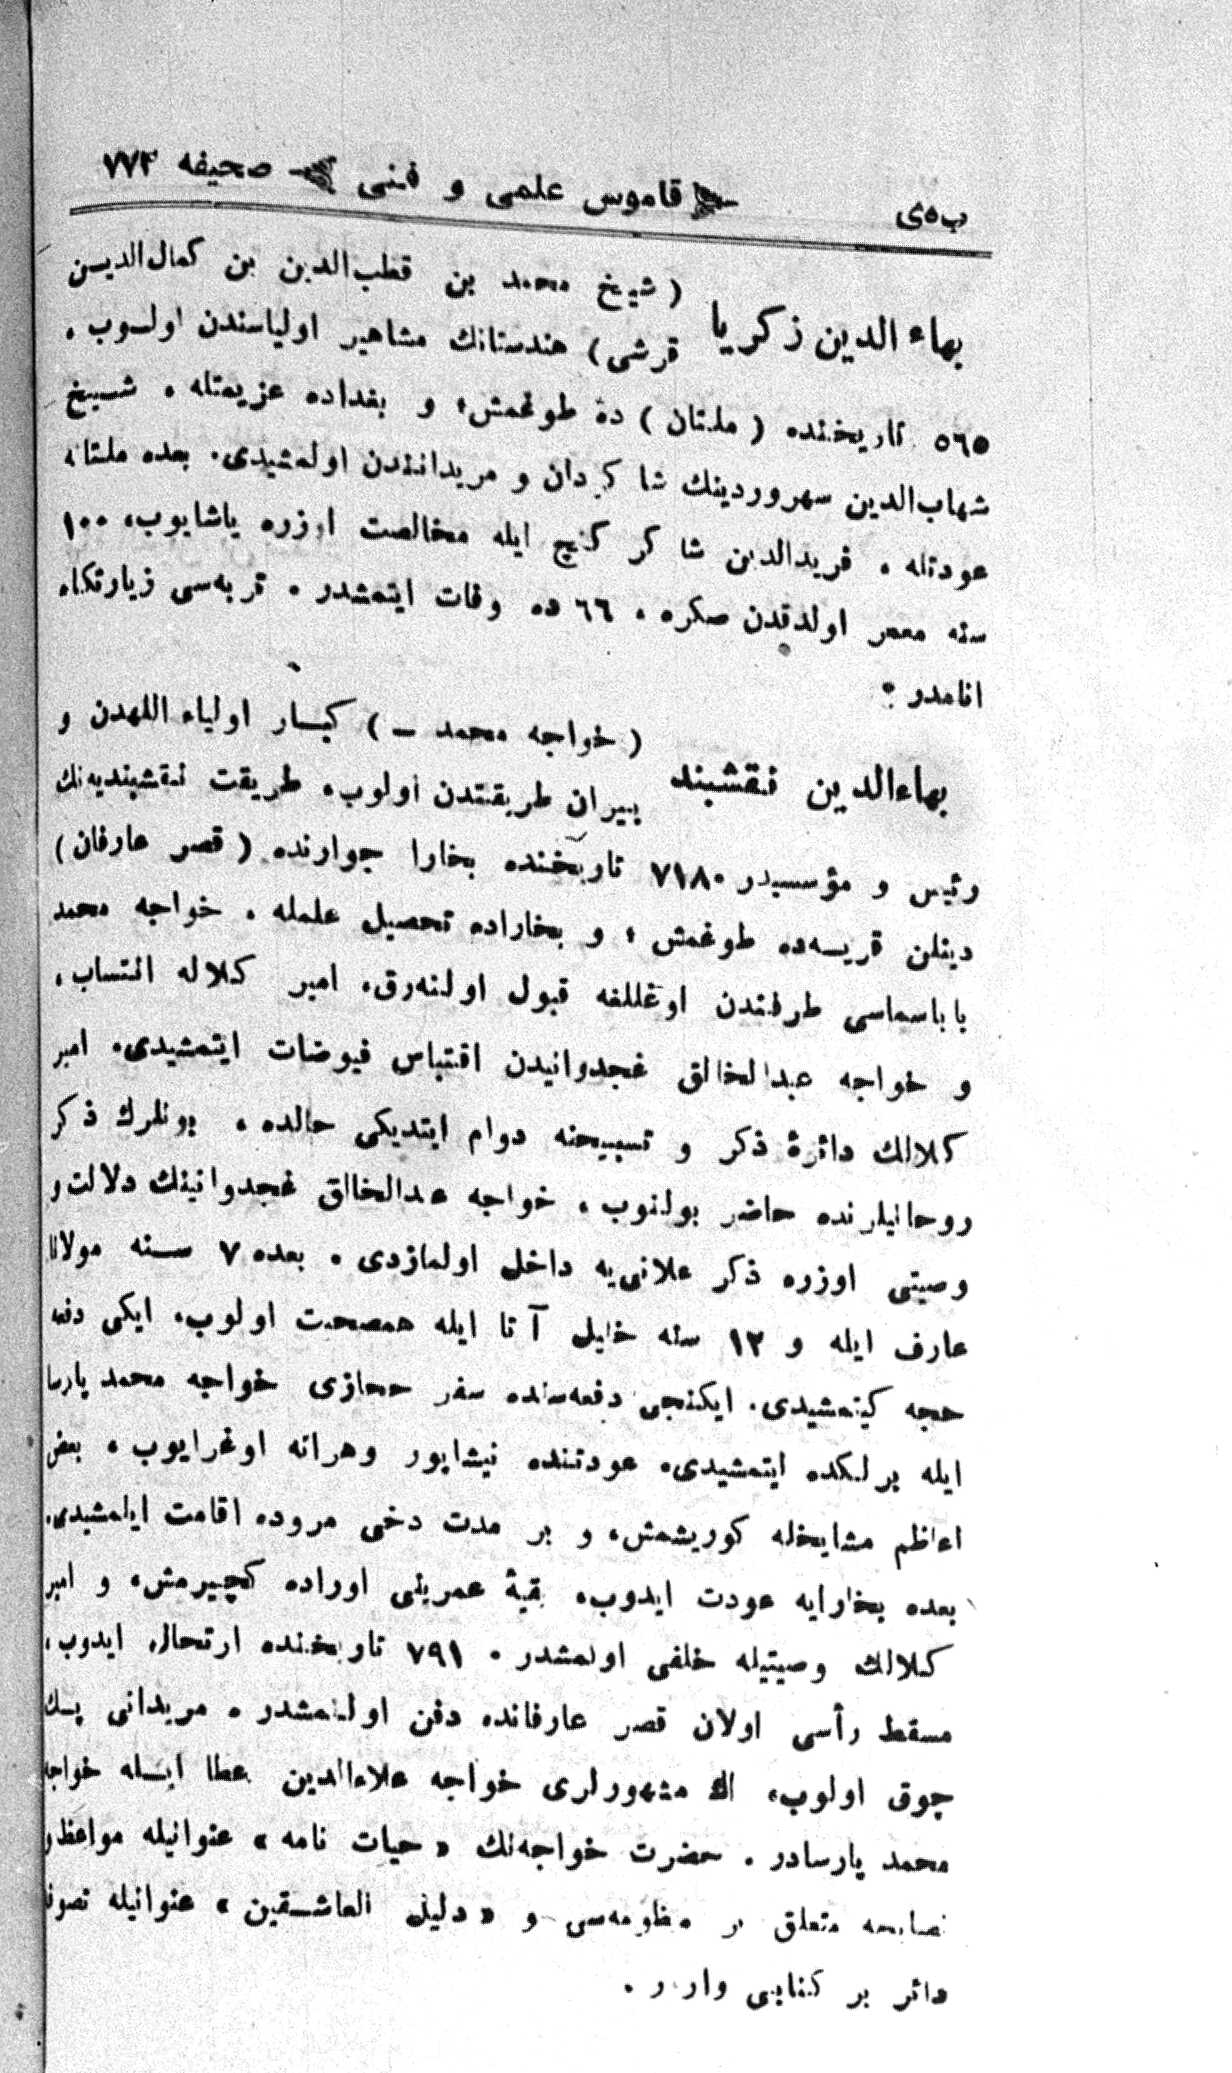 ب‌ه‌ی قاموس علمی و فنی صحیفه ۷۷۳
بهاء الدین زکریا (شیخ محمد بن قطب‌الدین بن کمال‌الدیـن
قرشی) هندستانك مشاهیر اولیاسندن اولـوب،
٥٦٥ تاریخنده (ملتان) ده طوغمش؛ و بغداده عزیمتله، شـیخ
شهاب‌الدین سهروردینك شاکردان و مریداننندن اولمشیدی. بعده ملتانه
عودتله، فریدالدین شاکر کنج ایله مخالصت اوزره یاشایوب، ١٠٠
سنه معمر اولدقدن صکره، ٦٦ ده وفات ایتمشدر. تربه‌سی زیارتکاه
انامدر:
بهاءالدین نقشبند (خواجه محمد ــ) کبـار اولیاء اللهدن و
پیران طریقتدن اولوب، طریقت نقشبندیه‌نك
رئیس و مؤسسیدر. ٧١٨ تاریخنده بخارا جوارنده (قصر عارفان)
دینلن قریـه‌ده طوغمش؛ و بخاراده تحصیل علمله، خواجه محمد
باباسماسی طرفندن اوغللغه قبول اولنه‌رق، امیر کلاله انتساب،
و خواجه عبدالخالق غجدوانیدن اقتباس فیوضات ایتمشیدی. امیر
کلالك دائرهٔ ذکر و تسبیحنه دوام ایتدیکی حالده، بونلرك ذکر
روحانیلرنده حاضر بولنوب، خواجه عبدالخالق غجدوانینك دلالت و
وصیتی اوزره ذکر علانی‌یه داخل اولمازدی. بعده ٧ سـنه مولانا
عارف ایله و ١٢ سنه خلیل آتا ایله همصحبت اولوب، ایکی دفعه
حجه کیتمشیدی. ایکنجی دفعه‌سنده سفر حجازی خواجه محمد پارسا
ایله برلکده ایتمشیدی. عودتنده نیشاپور وهراته اوغرایوب، بعض
اعاظم مشایخله کوریشمش، و بر مدت دخی مروده اقامت ایلمشیدی.
بعده بخارایه عودت ایدوب، بقیهٔ عمرینی اوراده کچیرمش، و امیر
کلالك وصیتیله خلفی اولمشدر. ٧٩١ تاریخنده ارتحال ایدوب،
مسقط رأسی اولان قصر عارفانده دفن اولنمشدر. مریدانی پـك
چوق اولوب، اك مشهورلری خواجه علاءالدین عطا ایـله خواجه
محمد پارسادر. حضرت خواجه‌نك «حیات نامه» عنوانیله مواعظ و
نصایحه متعلق بر منظومه‌سی و «دلیل العاشـقین» عنوانیله تصوفه
دائر بر کتابی واردر.